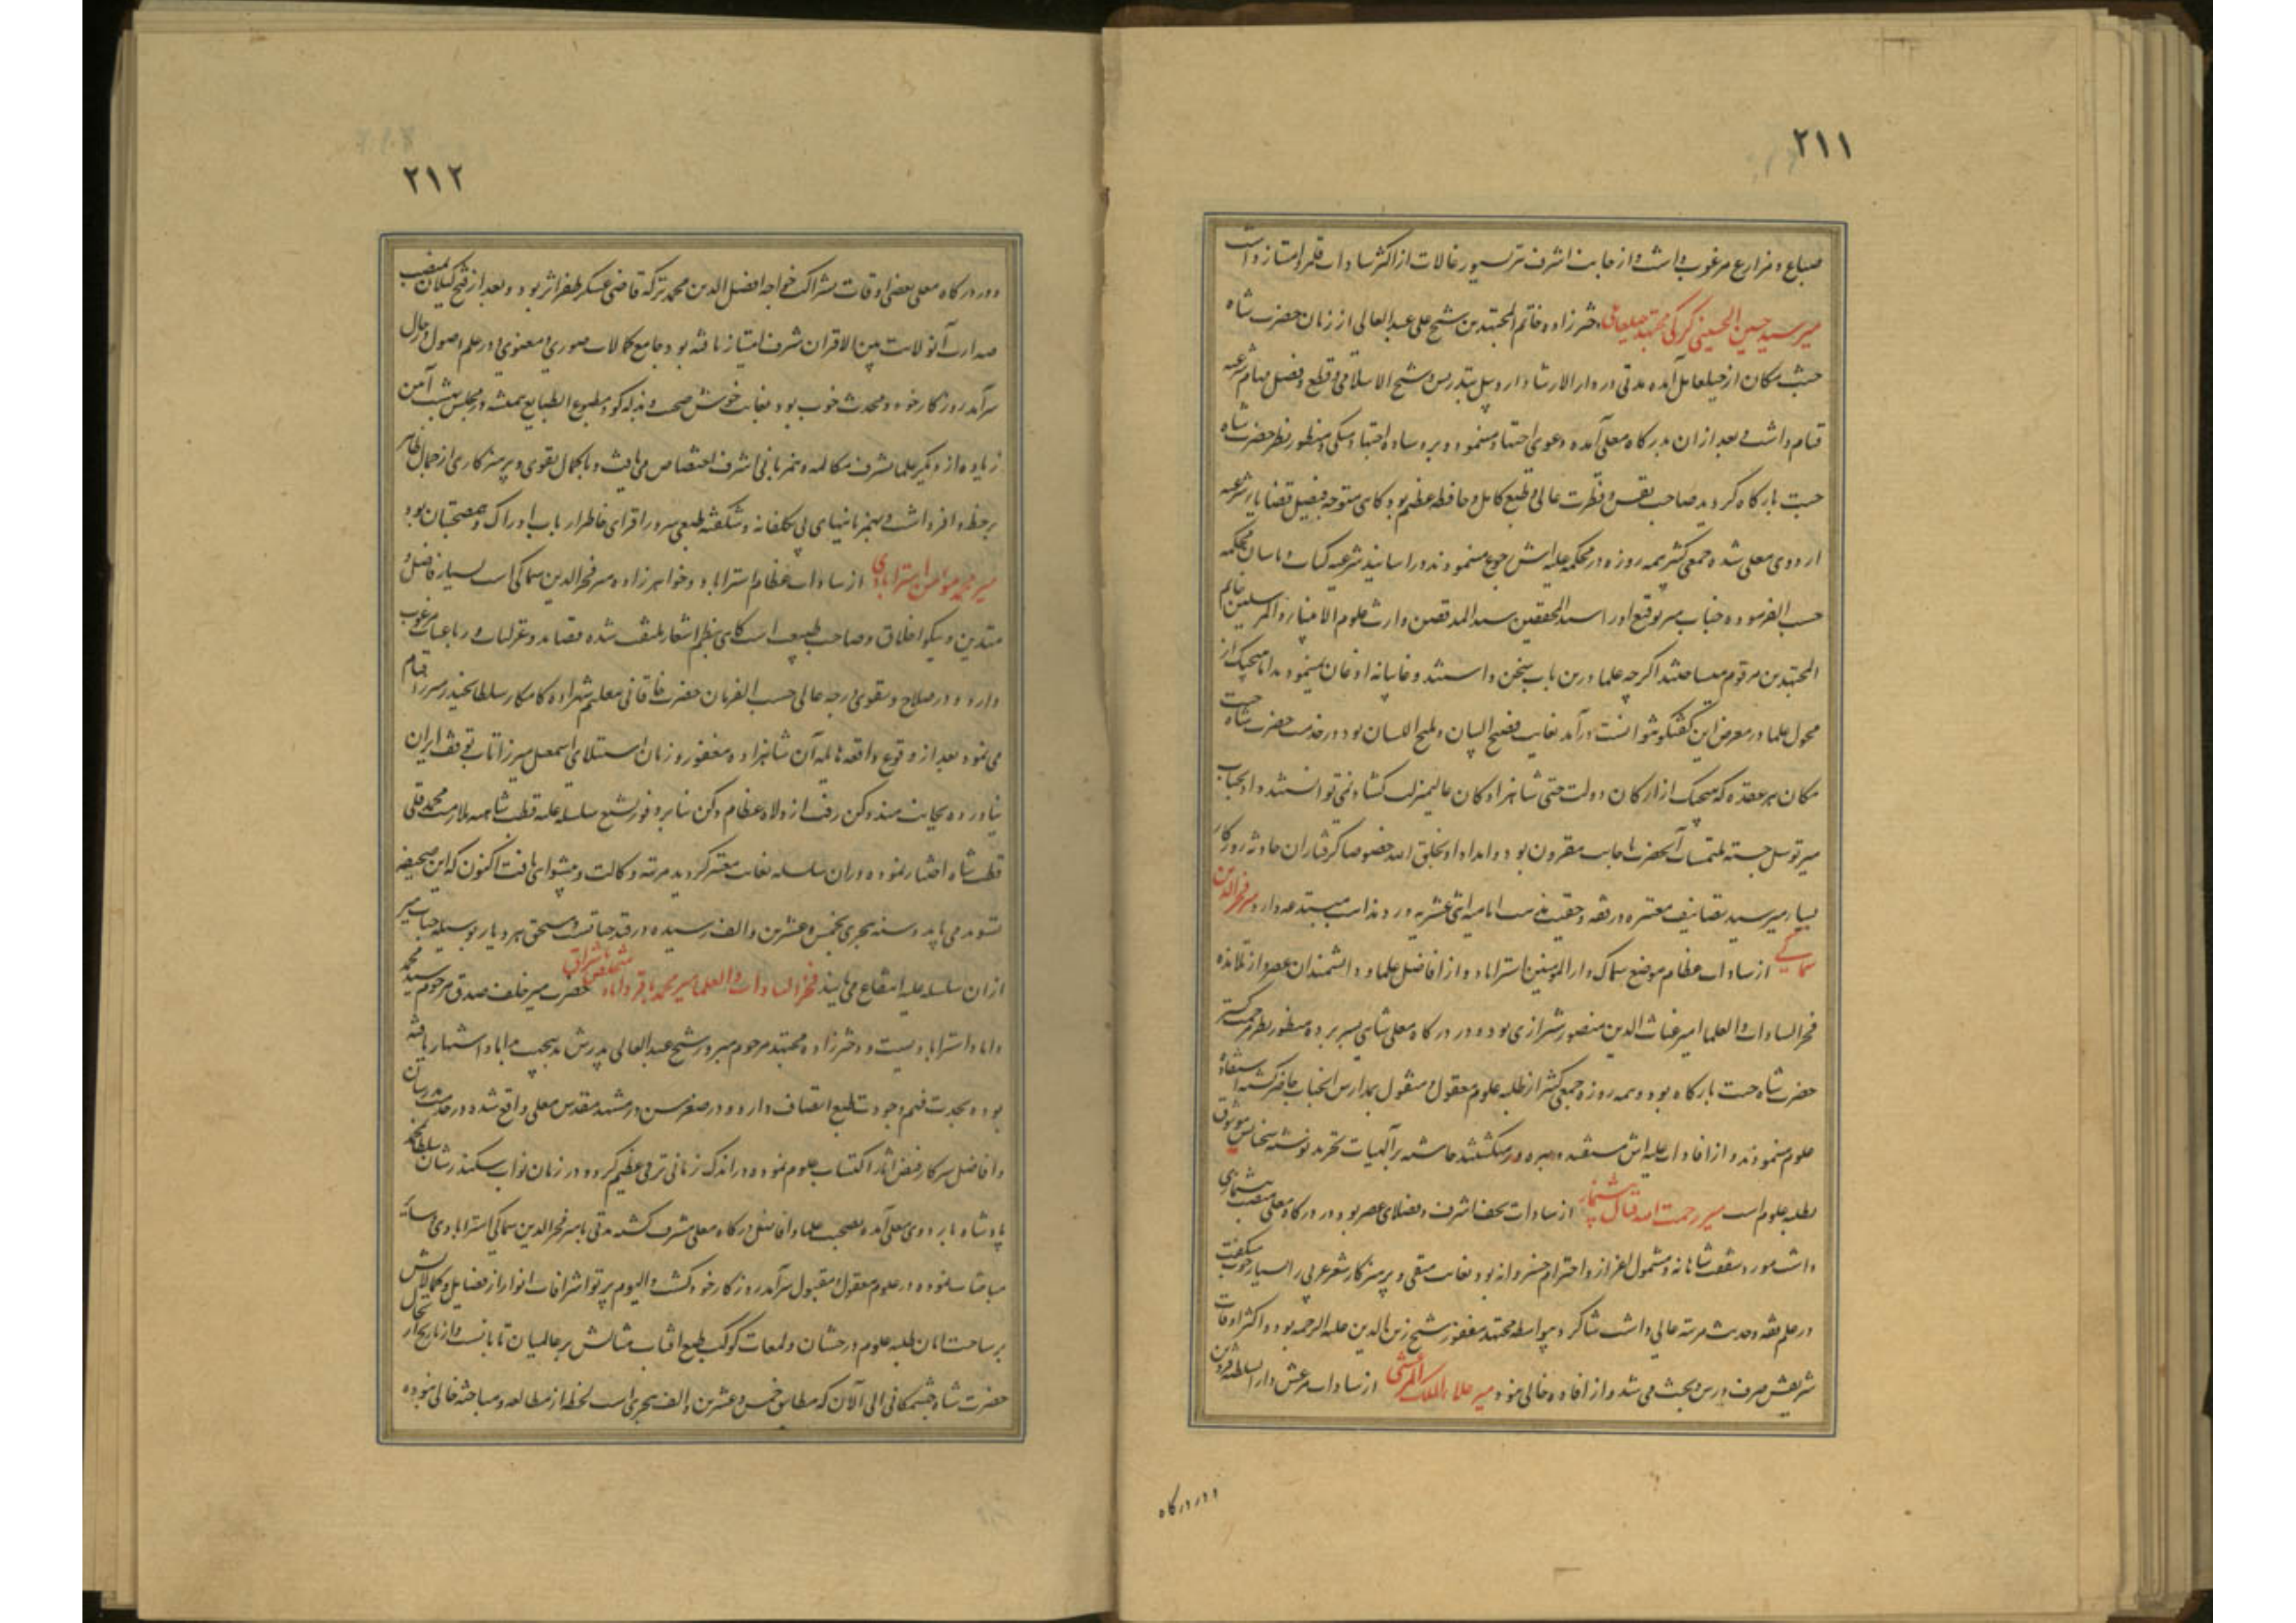 ٢١١
ضیاع و مزارع مرغوب داشت و از جانب اشرف بسیورغالات از اکثر سادات قلمرو امتیاز داشت
میر سید حسین الحسینی کرکی مجتهد جبلعاملی دخترزاده خاتم المجتهدین شیخ علی عبدالعالی از زمان حضرت شاه
جنت مکان از جبلعامل آمده مدتی در دارالارشاد اردبیل بتدریس و شیخ الاسلامی و قطع و فصل مهام شرعیه
قیام داشت و بعد از ان بدرگاه معلی آمده دعوی اجتهاد مینمود و بر وساده اجتهاد متکی و منظور نظر حضرت شاه
جنت بارگاه گردید صاحب نفس و فطرت عالی و طبع کامل و حافظه عظیم بود گاهی متوجه فیصل قضایای شرعیه
اردوی معلی شده جمعی کثیر همه روزه در محکمه علیه‌اش رجوع مینمودند و در اسانید شرعیه کتاب و ناسان محکمه
حسب الفرموده جناب میر بتوقیع او را سید المحققین سند المدققین وارث علوم الانبیاء و المرسلین خاتم
المجتهدین مرقوم میساختند اگرچه علما درین باب سخن داشتند و غایبانه اذعان نمینمودند اما هیچیک از
فحول علما در معرض این گفتگو نتوانست درآمد بغایت فصیح البیان و ملیح اللسان بود در خدمت حضرت شاه جنت
مکان هر عقده که هیچیک از ارکان دولت حتی شاهزادگان عالیمنزلت گشاد نمی‌توانستند داد بجناب
میر توسل جسته ملتمسات آنحضرت باجابت مقرون بود و امداد او بخلق الله خصوصا گرفتاران حادثه روزگار
بسیار میر سید تصانیف معتبره در فقه و حقیت مذهب امامیه اثنی عشریه و رد مذاهب مبتدعه دارد میر فخرالدین
سماکی از سادات عظام موضع سماک دارالمومنین استراباد و از افاضل علما و دانشمندان عصر و از تلامذه
فخر السادات و العلما امیر غیاث الدین منصور شیرازی بوده در درگاه معلی شاهی بسر برده منظور نظر مرحمت گستر
حضرت شاه جنت بارگاه بود و همه روزه جمعی کثیر از طلبه علوم معقول و منقول بمدارس انجناب حاضر گشته استفاده
علوم مینمودند و از افادات علیه‌اش مستفید و بهره‌ور میگشتند حاشیه بر الهیات تجرید نوشته سخنانش موثوق
طلبه علوم است میر رحمت الله قتال پیشنماز از سادات نجف اشرف و فضلای عصر بود و در درگاه معلی منصب پیشنمازی
داشت مورد شفقت شاهانه و مشمول اعزاز و احترام خسروانه بود بغایت متقی و پرهیزکار شعر عربی را بسیار خوب میگفت
در علم فقه و حدیث مرتبه عالی داشت شاگرد بیواسطه مجتهد مغفور شیخ زین الدین علیه الرحمه بود و اکثر اوقات
شریفش صرف درس و بحث می‌شد و از افاده خالی نبود میر علاء الملک مرعشی از سادات مرعش دارالسلطنه قزوین
و در درگاه
٢١٢
و در درگاه معلی بعضی اوقات بشراکت خواجه افضل الدین محمد ترکه قاضی عسکر ظفر اثر بود و بعد از فتح گیلان بمنصب
صدارت آن ولایت بین الاقران شرف امتیاز یافته بود جامع کمالات صوری و معنوی و در علم اصول و رجال
سرآمد روزگار خود و محدث خوب بود بغایت خوش صحبت و بذله‌گو و مطبوع الطبایع همیشه در مجلس بهشت آیین
زیاده از دیگر علما بشرف مکالمه و همزبانی اشرف اختصاص می‌یافت و با کمال تقوی و پرهیزکاری از جمال ظاهر
بر حظ وافر داشت و بهمزبانیهای بی‌تکلفانه و شگفته طبعی سرور افزای خاطر ارباب ادراک و هم‌صحبتان بود
میر محمد مومن استرابادی از سادات عظام استراباد و خواهرزاده میر فخرالدین سماکی است بسیار فاضل و
متدین و نیکو اخلاق و صاحب طبیعت است گاهی بنظم اشعار ملتفت شده قصاید و غزلیات و رباعیات مرغوب
دارد و در صلاح و تقوی درجه عالی حسب الفرمان حضرت خاقانی معلم شهزاده کامکار سلطان حیدر میرزا قیام
می‌نمود بعد از وقوع واقعه هایله آن شاهزاده مغفور و زمان استیلای اسمعیل میرزا تاب توقف ایران
نیاورده بجانب هند و دکن رفت از ولاة عظام دکن بنابر وفور تشیع سلسله علیه قطب شاهیه ملازمت محمد قلی
قطب شاه اختیار نموده در ان سلسله بغایت معتبر گردید مرتبه وکالت و پیشوایی یافت اکنون که این صحیفه
تسوید می‌یابد و سنه هجری بخمس و عشرین و الف رسیده در قید حیات است و مستحق هر دیار بوسیله جناب میر
از ان سلسله علیه انتفاع می‌یابند فخر السادات و العلما میر محمد باقر داماد متخلص باشراق حضرت میر خلف صدق مرحوم سید محمد
داماد استرابادیست و دخترزاده مجتهد مرحوم مبرور شیخ عبدالعالی پدرش بدین جهت بداماد اشتهار یافته
بود و بجدت فهم و جودت طبع اتصاف دارد و در صغر سن در مشهد مقدس معلی واقع شده در خدمت مدرسان
و افاضل سرکار فیض آثار اکتساب علوم نموده در اندک زمانی ترقی عظیم کرد و در زمان نواب سکندر شان سلطان محمد
پادشاه باردوی معلی آمده بصحبت علما و افاضل درگاه معلی مشرف گشته مدتی با میر فخرالدین سماکی استرابادی و سایر
مباحثات نموده در علوم معقول و منقول سرآمد روزگار خود گشت و الیوم پرتو اشراقات انوار از فضایل و کمالاتش
بر ساحت امانی طلبه علوم درخشان و لمعات کوکب طبع افتاب مثالش بر عالمیان تابانست و از تاریخ ارتحال
حضرت شاه جنتمکانی الی الآن که مطابق خمس و عشرین و الف هجری است لحظه از مطالعه و مباحثه خالی نبوده